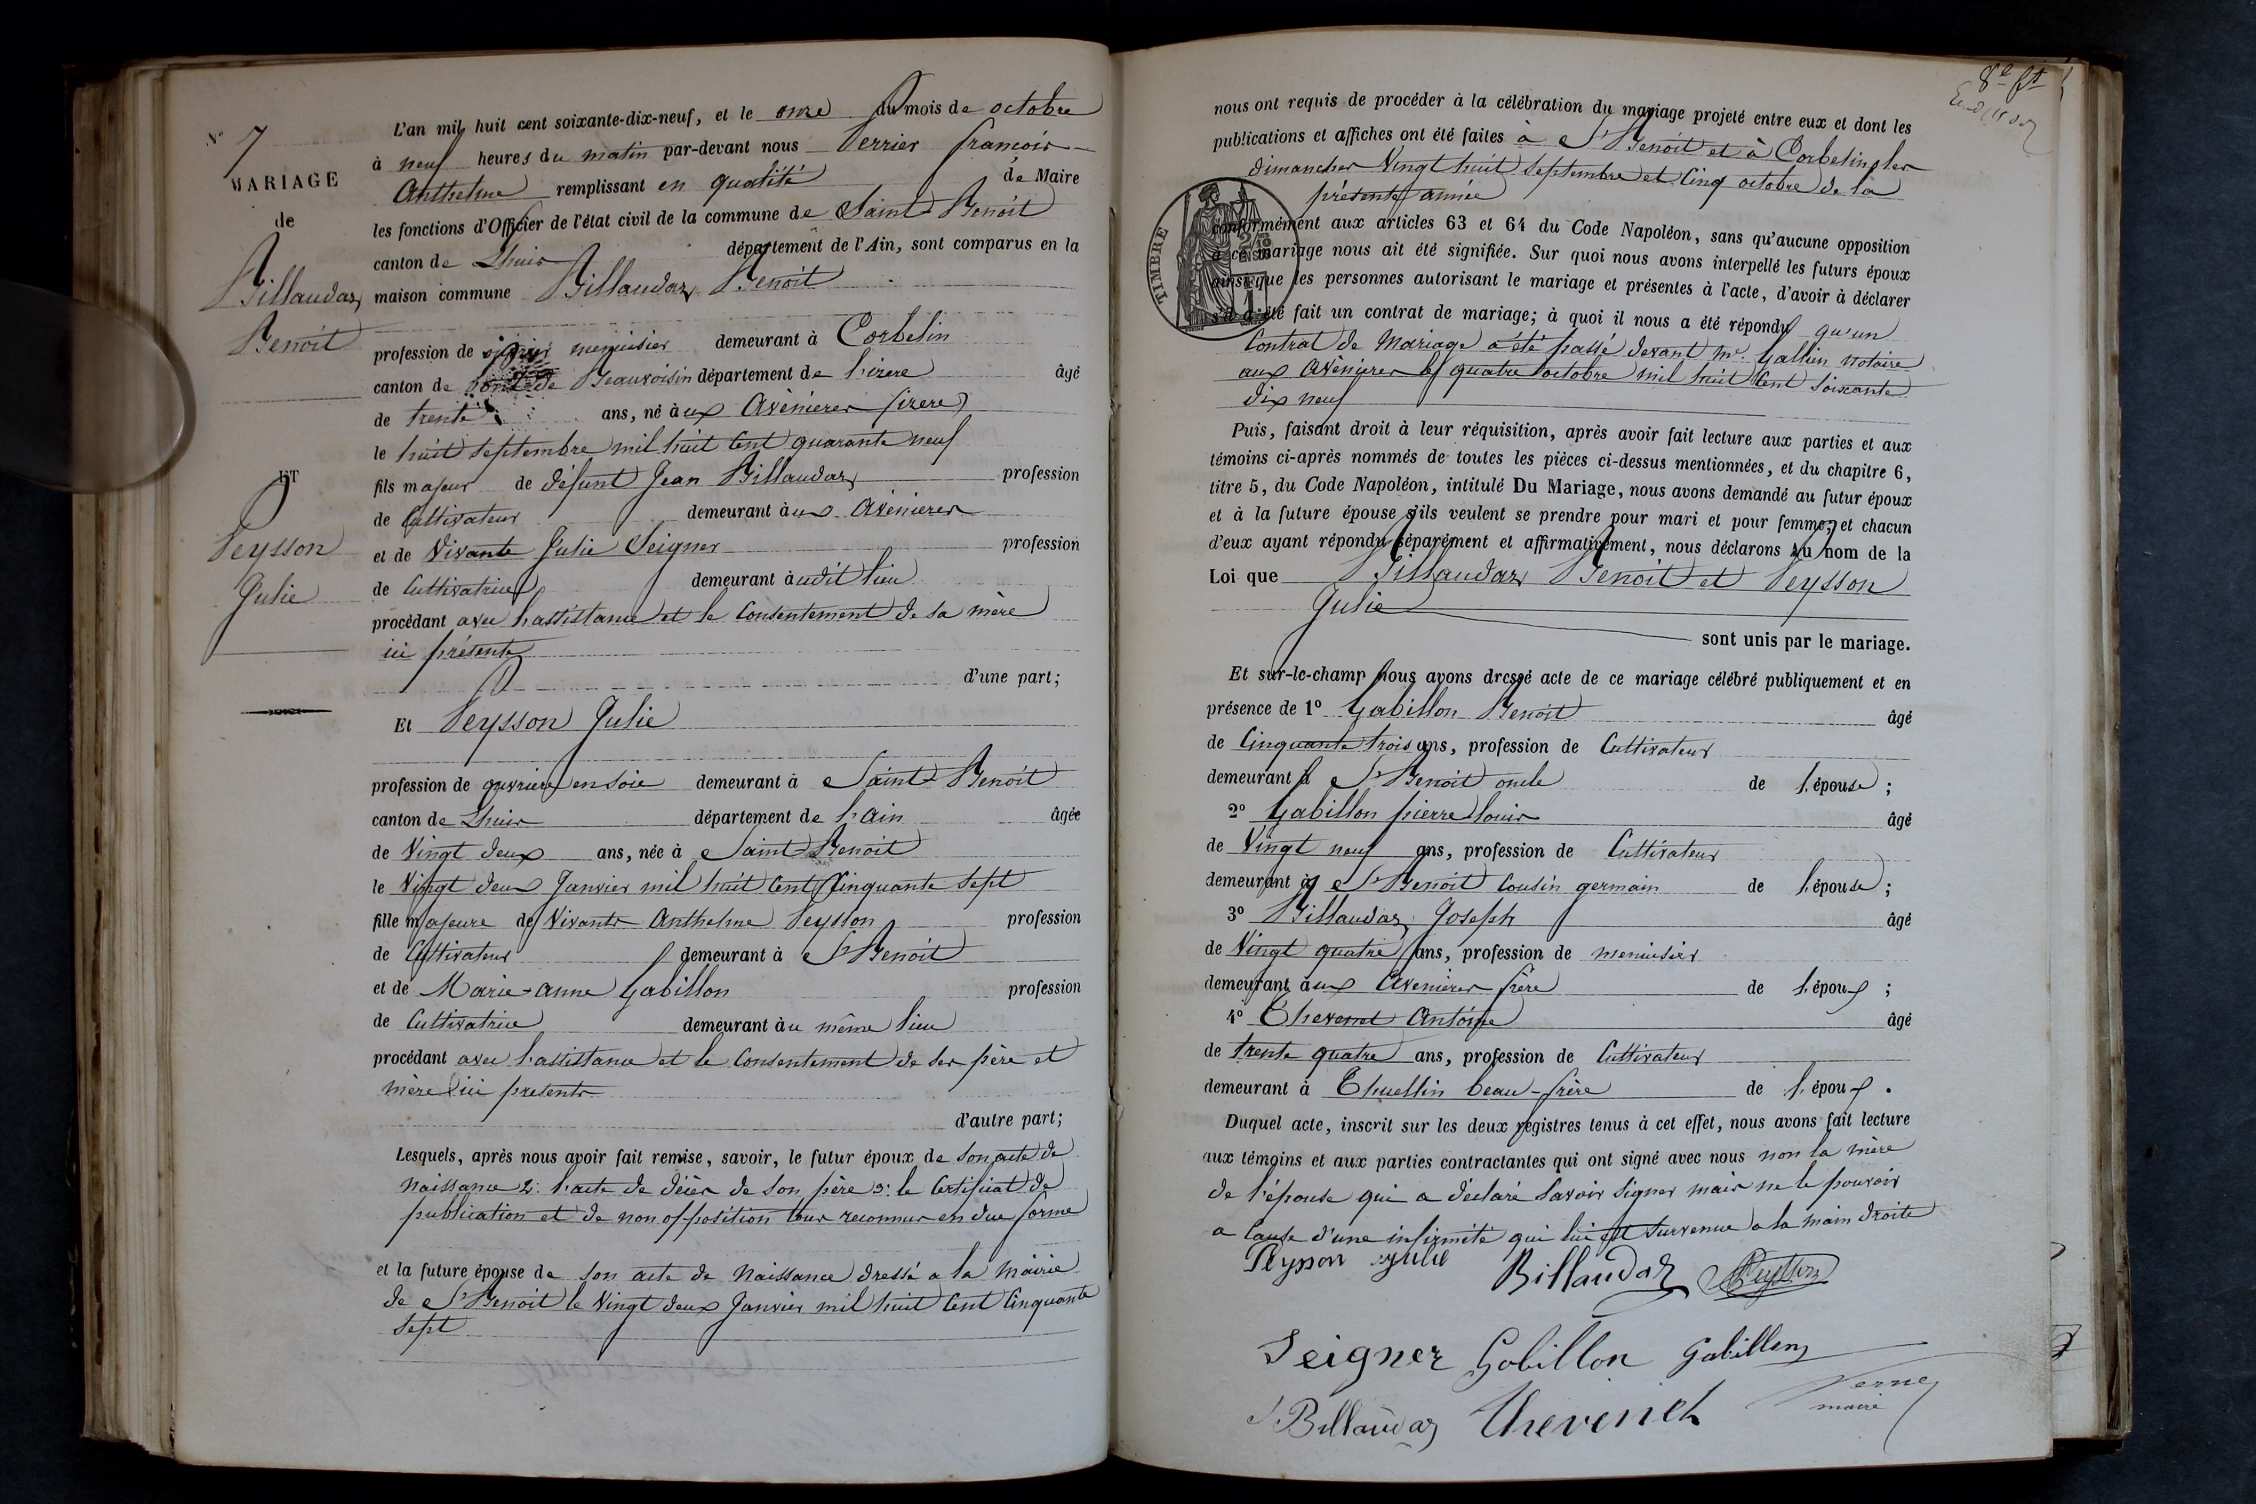 N° 7
MARIAGE
de
Billaudaz
Benoit
ET
Peysson
Julie
L'an mil huit cent soixante-dix-neuf, et le onze du mois de octobre
à neuf heures du matin par-devant nous Perrier françois
Anthelme remplissant en qualité de Maire
les fonctions d'Officier de l'état civil de la commune de Saint-Benoit
canton de Lhuis département de l'Ain, sont comparus en la
maison commune Billaudaz Benoit
profession de menuisier demeurant à Corbelin
canton de pont de Beauvoisin département de l'izere âgé
de trente ans, né aux Avenieres (izere)
le huit septembre mil huit cent quarante neuf
fils majeur de défunt Jean Billaudaz profession
de Cultivateur demeurant aux Avenieres
et de Vivante Julie Seigner profession
de Cultivatrice demeurant audit lieu
procédant avec l'assistance et le Consentement de sa mère
ici présente
d'une part;
Et Peysson Julie
profession de ouvriere en soie demeurant à Saint-Benoit
canton de Lhuis département de l'ain âgée
de Vingt deux ans, née à Saint-Benoit
le Vingt deux Janvier mil huit Cent Cinquante sept
fille majeure de Vivants Anthelme Peysson profession
de Cultivateur demeurant à St Benoit
et de Marie-anne Gabillon profession
de Cultivatrice demeurant au même lieu
procédant avec l'assistance et le Consentement de ses père et
mère ici presents
d'autre part;
Lesquels, après nous avoir fait remise, savoir, le futur époux de son acte de
Naissance 2: l'acte de décès de son père 3: le Certificat de
publication et de non opposition tous reconnus en due forme
et la future épouse de son acte de Naissance dressé a la mairie
de St Benoit le Vingt deux Janvier mil huit Cent Cinquante
Sept
8e ft
nous ont requis de procéder à la célébration du mariage projeté entre eux et dont les
publications et affiches ont été faites à St Benoit et à Corbelin les
dimanches Vingt huit septembre et Cinq octobre de la
présente année
conformément aux articles 63 et 64 du Code Napoléon, sans qu'aucune opposition
à ce mariage nous ait été signifiée. Sur quoi nous avons interpellé les futurs époux
ainsi que les personnes autorisant le mariage et présentes à l'acte, d'avoir à déclarer
s'il a été fait un contrat de mariage; à quoi il nous a été répondu qu'un
Contrat de Mariage a été passé devant me Gallin notaire
aux Avenieres le quatre octobre mil huit Cent Soixante
dix neuf
TIMBRE
Puis, faisant droit à leur réquisition, après avoir fait lecture aux parties et aux
témoins ci-après nommés de toutes les pièces ci-dessus mentionnées, et du chapitre 6,
titre 5, du Code Napoléon, intitulé Du Mariage, nous avons demandé au futur époux
et à la future épouse s'ils veulent se prendre pour mari et pour femme; et chacun
d'eux ayant répondu séparément et affirmativement, nous déclarons au nom de la
Loi que Billaudaz Benoit et Peysson
Julie
sont unis par le mariage.
Et sur-le-champ nous avons dressé acte de ce mariage célébré publiquement et en
présence de 1° Gabillon Benoit âgé
de Cinquante trois ans, profession de Cultivateur
demeurant à St Benoit oncle de l'épouse ;
2° Gabillon pierre louis âgé
de Vingt neuf ans, profession de Cultivateur
demeurant à St Benoit Cousin germain de l'épouse ;
3° Billaudaz Joseph âgé
de Vingt quatre ans, profession de menuisier
demeurant aux Avenieres frère de l'époux ;
4° Thevenet Antoine âgé
de trente quatre ans, profession de Cultivateur
demeurant à Thuellin beau-frère de l'époux .
Duquel acte, inscrit sur les deux registres tenus à cet effet, nous avons fait lecture
aux témoins et aux parties contractantes qui ont signé avec nous non la mère
de l'épouse qui a déclaré Savoir signer mais ne le pouvoir
a Cause d'une infirmité qui lui est Survenue a la main droite
Peysson Julie Billaudaz Peysson
Seigner Gobillon Gabillon
Billaudaz Thevenet
maire